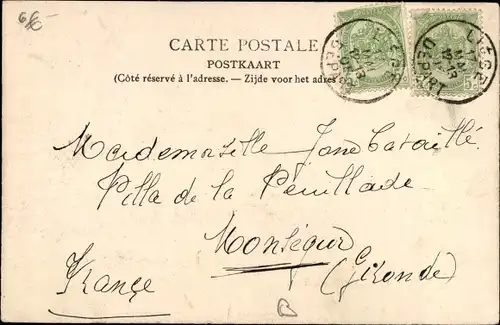 6€
CARTE POSTALE
POSTKAART
(Côté réservé à l'adresse. — Zijde voor het adres
LIÈGE
DÉPART
LIÈGE
DÉPART
Mademoiselle Jane Bataillé
Villa de la Feuillade
Monségur
France (Gironde)
B